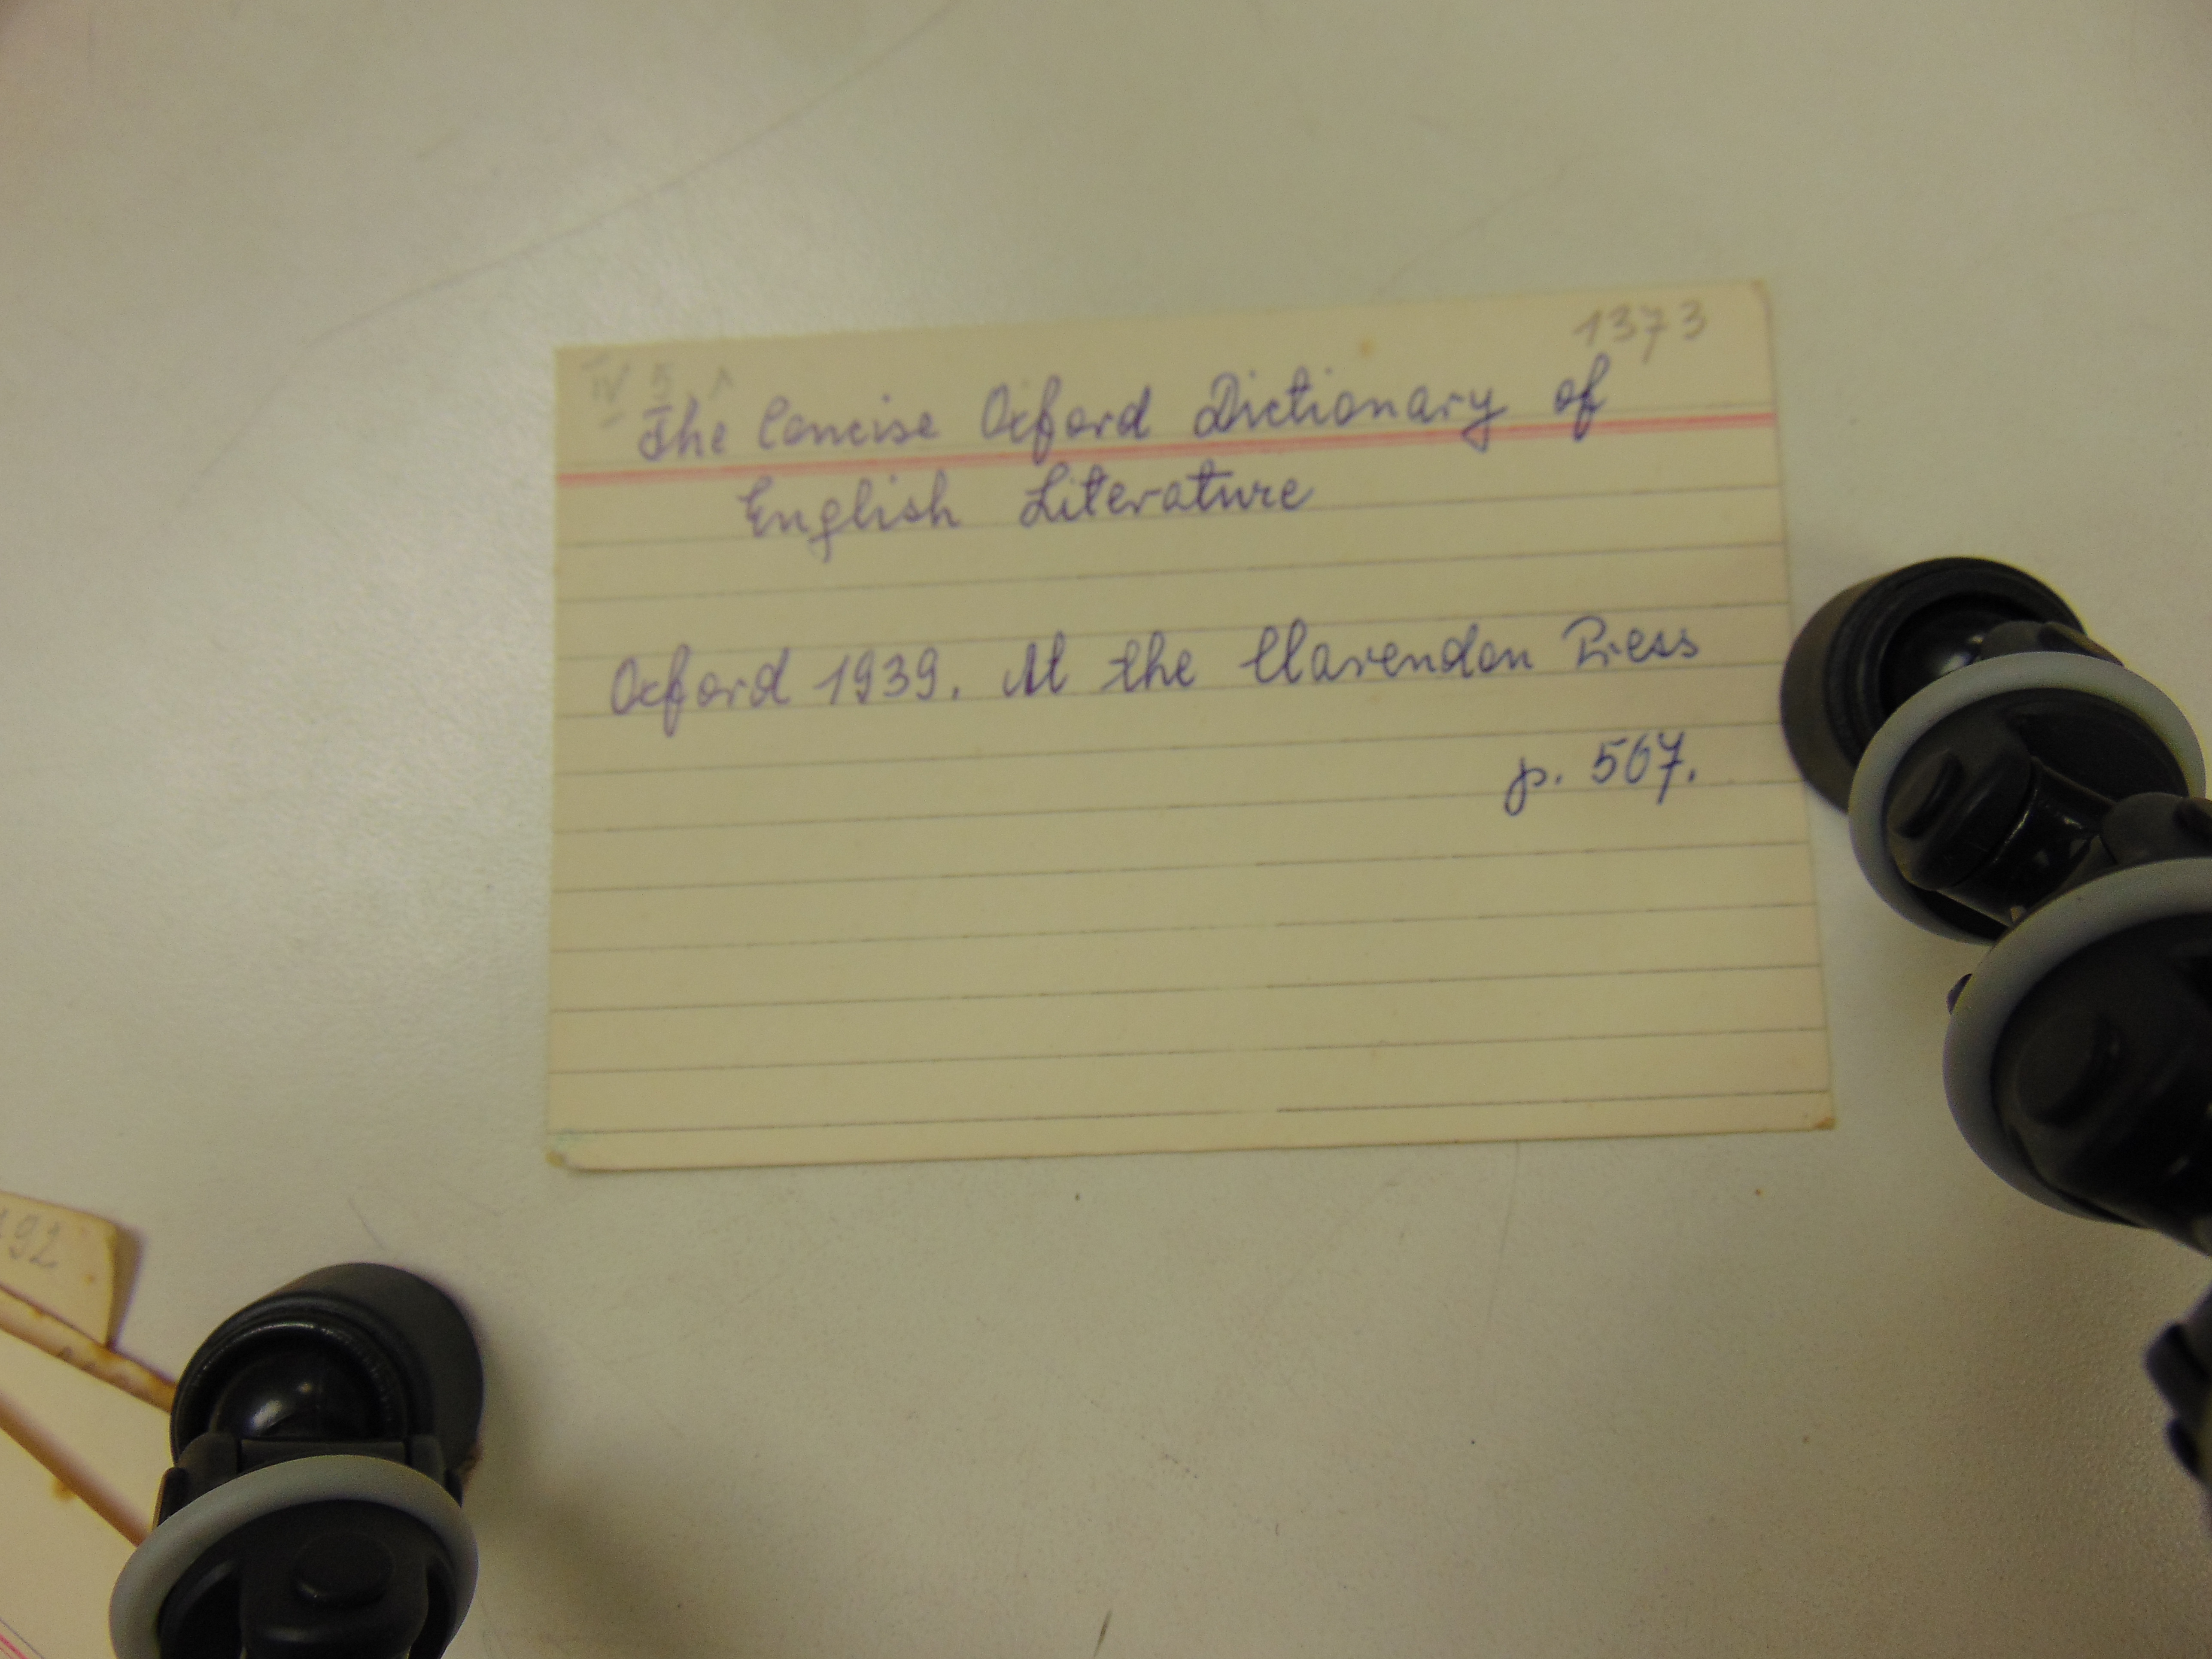 1373
IV 5
The Concise Oxford Dictionary of
English Literature
Oxford 1939. At the Clarendon Press
p. 567.
92